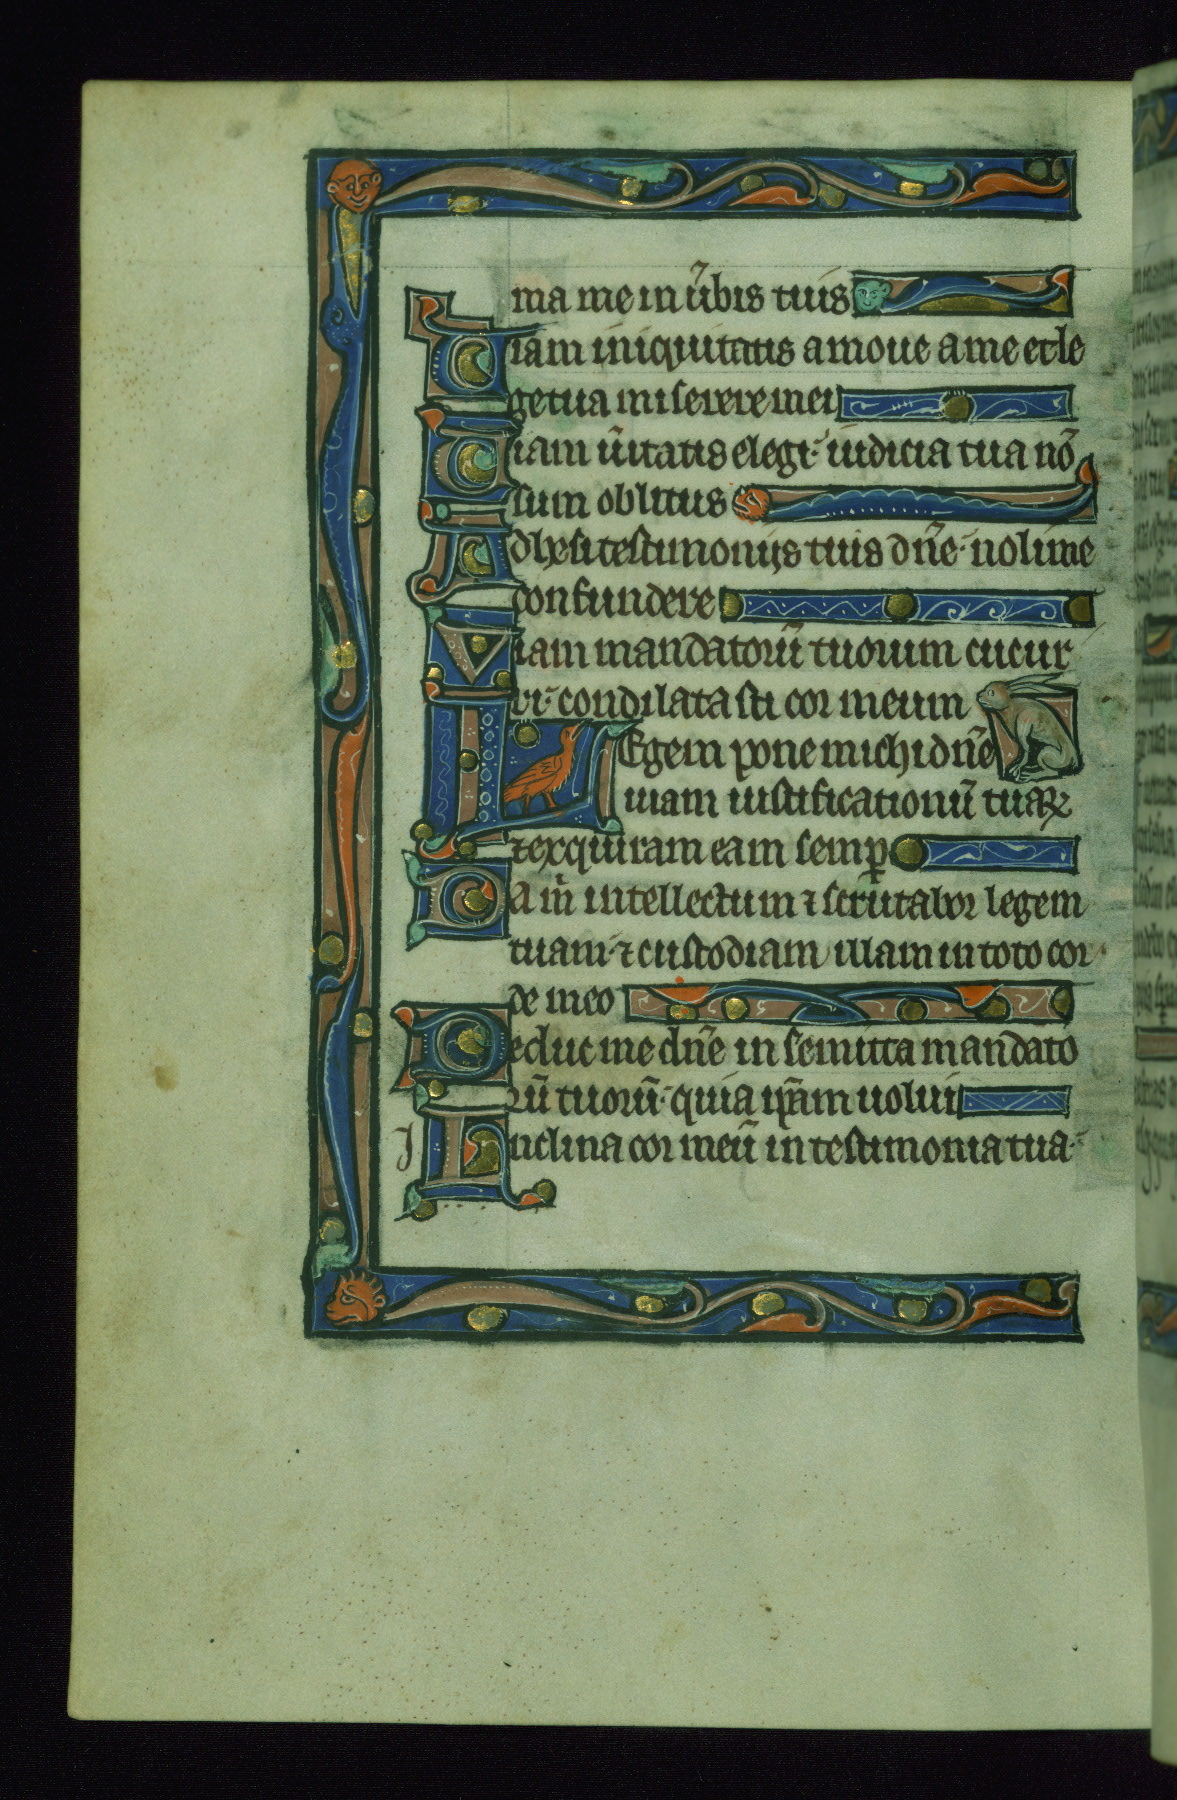 ma me in ũbis tuis
Uiam iniquitatis amoue a me et le
ge tua miserere mei
Uiam ũitatis elegi· iudicia tua nõ
sum oblitus
Adhesi testimonijs tuis dñe· noli me
confundere
Viam mandatorũ tuorum cucur
ri· cum dilatasti cor meum
Legem pone michi dñe
uiam iustificationũ tuaꝝ
et exquiram eam semꝑ
Da m̃ intellectum ⁊ scrutabor legem
tuam· ⁊ custodiam illam in toto cor
de meo
Deduc me dñe in semita mandato
rũ tuorũ· quia ip̃am uolui
Inclina cor meũ in testimonia tua·